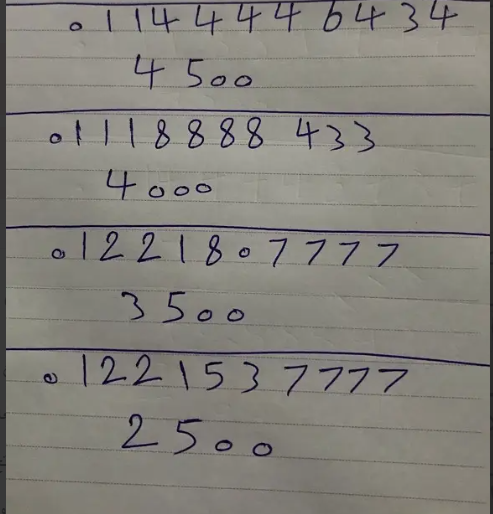 01144446434
4500
01118888433
4000
01221807777
3500
01221537777
2500